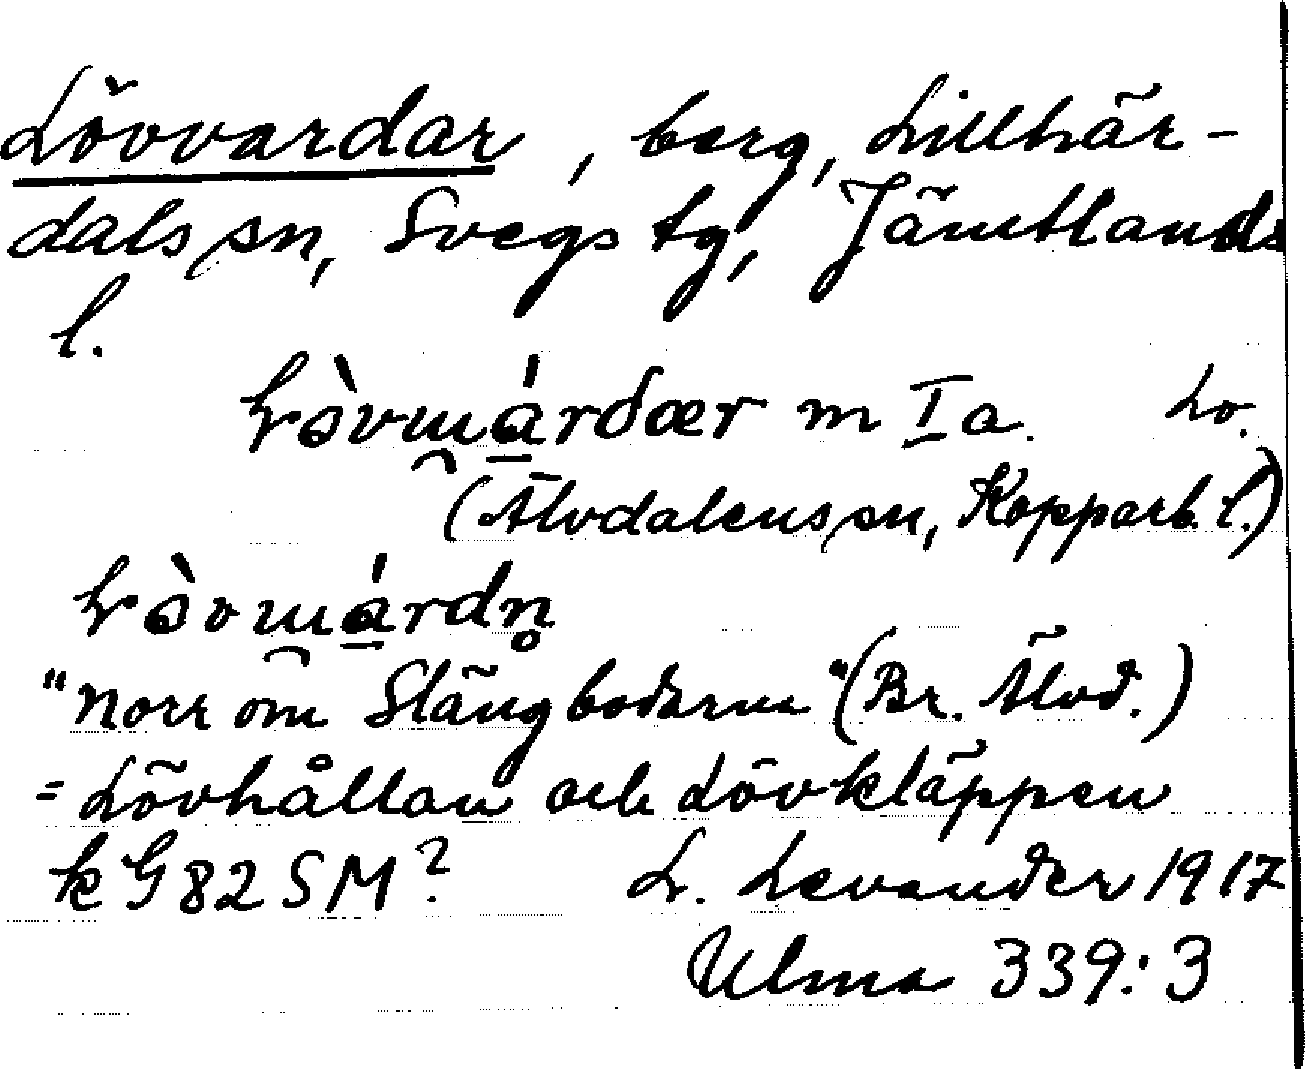 Lövvardar, berg, Lillhär-
dals sn, Svegs tg, Jämtlands
l.
Lòvw̯árdær m I a. Lo.
(Älvdalens sn, Kopparb. l.)
Lòvw̯árdn̥
"Norr om Slängbodarna" (Br. Älvd.)
= Lövhållan och Lövkläppen
k G 82 S M?
L. Levander 1917
Ulma 339:3